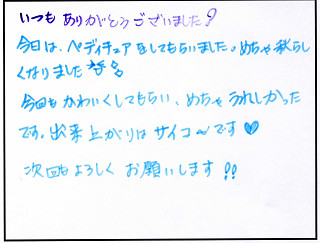 いつも ありがとうございました!
今日は、ペディチュアをしてもらいました。めちゃ秋らし
くなりました
今回も かわいくしてもらい、めちゃ うれしかった
です。出来上がりは サイコ〜です♡
次回も よろしく お願いします!!